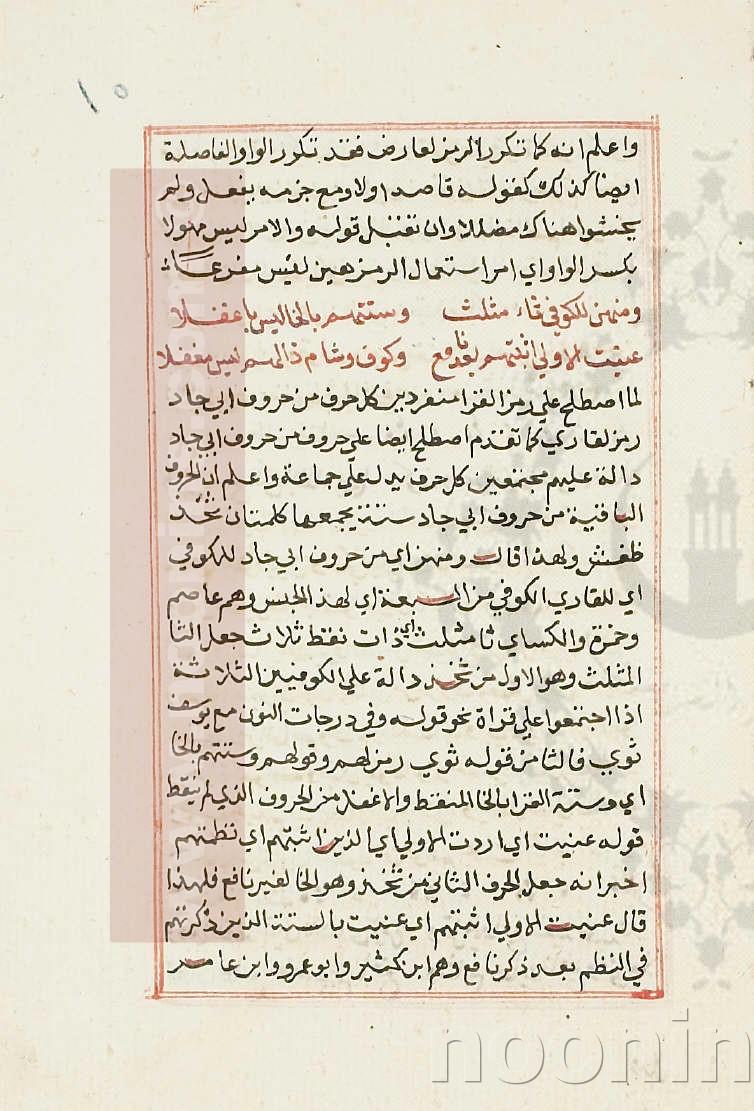 ١٥
واعلم انه كما تكرر الرمز لعارض فقد تكرر الواو الفاصلة
ايضا كذلك كقوله قاصدا ولا ومع جزمه يفعل ولم
يخشوا هناك مضللا وان تقبل قوله والامر ليس مهولا
بكسر الواو اي امر استعمال الرمزهين ليس مفزعا
ومنهن للكوفي ثاء مثلث وستتهم بالخا ليس باغفلا
عنيت الاولي اثبتهم بعد نافع وكوف وشام ذالهم ليس مغفلا
لما اصطلح علي رمز القرا منفردين كل حرف من حروف ابي جاد
رمز لقاري كما تقدم اصطلح ايضا علي حروف من حروف ابي جاد
دالة عليهم مجتمعين كل حرف يدل علي جماعة واعلم ان الحروف
الباقية من حروف ابي جاد ستة يجمعها كلمتان ثخذ
ظغش ولهذا قال ومنهن اي من حروف ابي جاد للكوفي
اي للقاري الكوفي من السبعة اي لهذا الجنس وهم عاصم
وحمزة والكساي ثا مثلث اي ذات نقط ثلاث جعل الثا
المثلث وهو الاول من ثخذ دالة علي الكوفيين الثلاثة
اذا اجتمعوا علي قراة نحو قوله وفي درجات النون مع يوسف
ثوي فالثا من قوله ثوي رمز لهم وقولهم وستتهم بالخا
اي وستة القرا بالخا المنقط والاغفل من الحروف الذي لم ينقط
قوله عنيت اي اردت الاولي اي الذين اثبتهم اي نظمتهم
اخبر انه جعل الحرف الثاني من ثخذ وهو الخا لغير نافع فلهذا
قال عنيت الاولي اثبتهم اي عنيت بالستة الذين ذكرتهم
في النظم بعد ذكر نافع وهم ابن كثير وابو عمرو وابن عامر
noonin